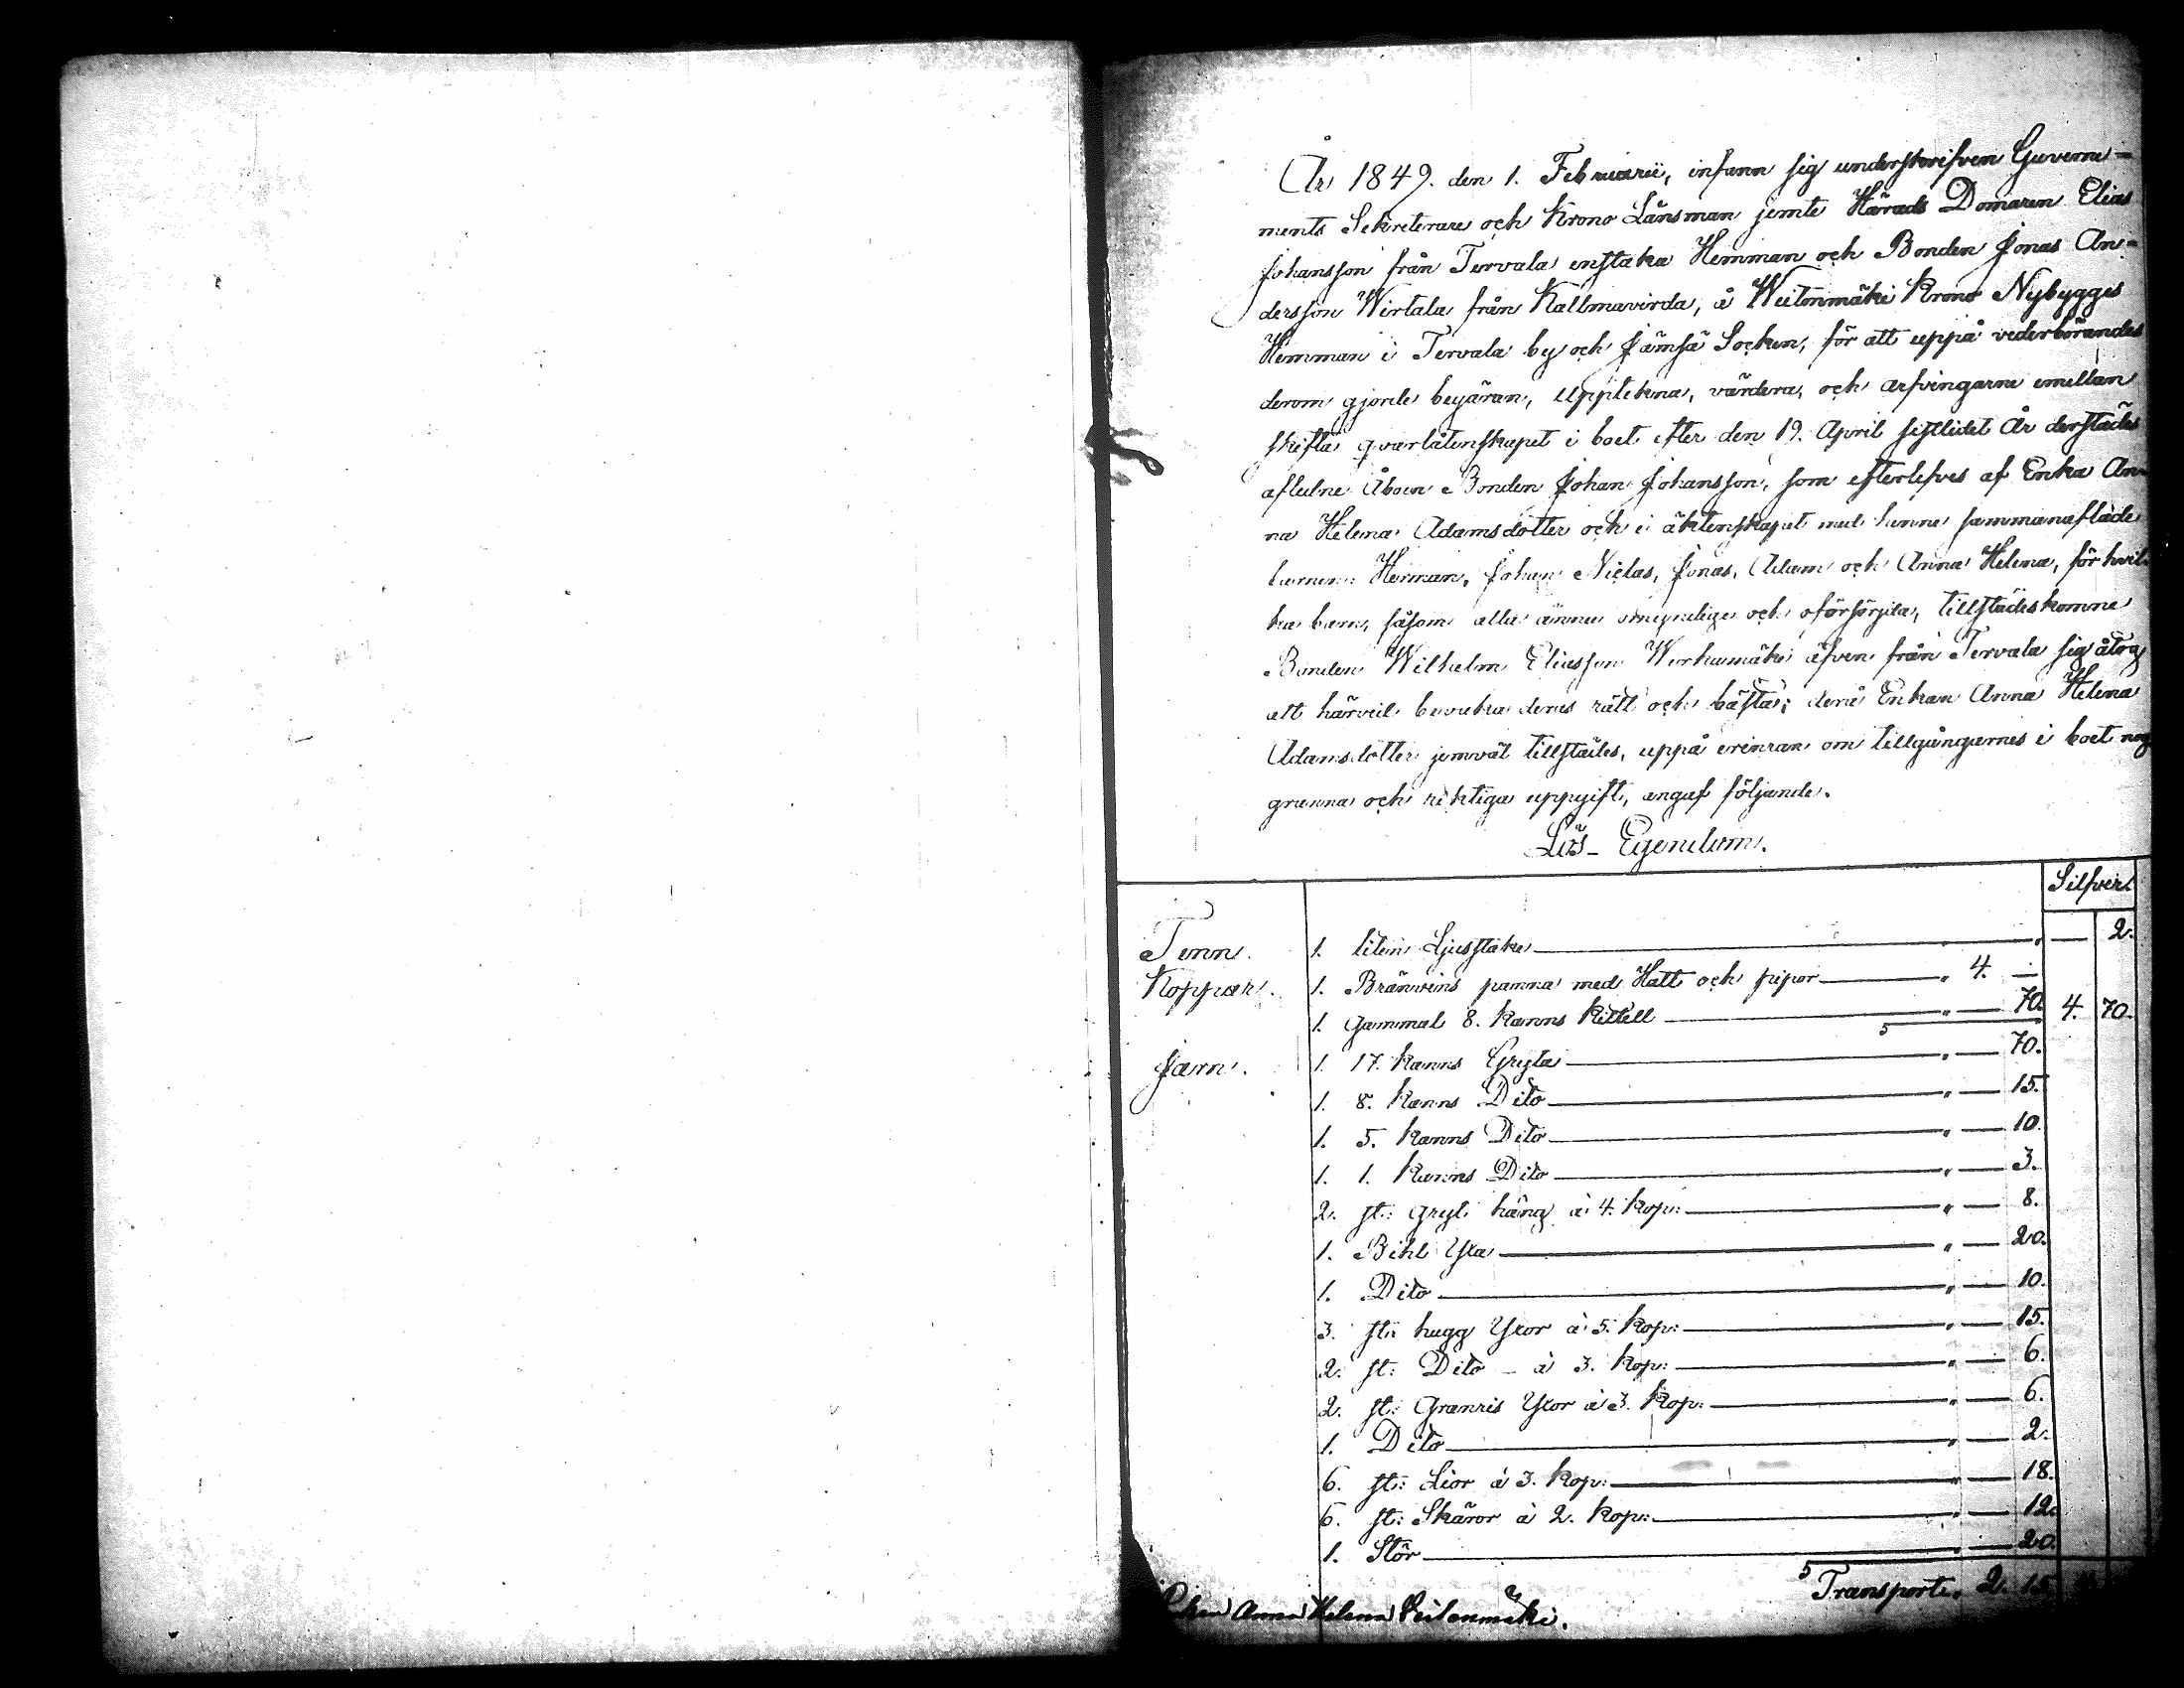 År 1849. den 1. Februarii, infann sig underskrifven Guverne-
ments Sekreterare och Krono Länsman jemte Härads Domaren Elias
Johansson från Tervala enstaka Hemman och Bonden Jonas An-
dersson Wirtala från Kallmavirda, å Weitonmäki Krono Nybygges
Hemman i Tervala by och Jämsä Socken, för att uppå vederbörandes
derom gjorde begäran, uppteckna, värdera, och arfvingarne emellan
skifta qvarlåtenskapet i boet efter den 19. April sistlidet År derstädes
aflidne Åboen Bonden Johan Johansson, som efterlefves af Enka An-
na Helena Adamsdotter och i äktenskapet med henne sammanaflade
barnen: Herman, Johan Niclas, Jonas, Adam och Anna Helena, för hvil-
ka barn, såsom alla ännu omyndige och oförsörjda, tillstädeskomne
Bonden Wilhelm Eliasson Workumäki äfven från Tervala sig åtog
att härvid bevaka deras rätt och bästa; derå Enkan Anna Helena
Adamsdotter jemväl tillstädes, uppå erinran om tillgångarnes i boet nog
granna och riktiga uppgift, angaf följande.
Lös- Egendom.
Silfver.
Tenn. 1. liten Ljusstake " — 2.
Koppar. 1. Bränvins panna med Hatt och pipor " 4. —
1. gammal 8. kanns Kittell " — 70. 4. 70.
Jern. 1. 17. kanns Gryta " — 70.
1. 8. kanns Dito " — 15.
1. 5. kanns Dito " — 10.
1. 1. kanns Dito " — 3.
2. st: gryt häng à 4. kop: " — 8.
1. Bihl Yxa " — 20.
1. Dito " — 10.
3. st: hugg Yxor à 5. kop: " — 15.
2. st: Dito - à 3. kop: " — 6.
2. st: Granris Yxor à 3. kop: " — 6.
1. Dito " — 2.
6. st: Lior à 3. kop: " — 18.
6. st: Skäror à 2. kop: " — 12.
1. Stör " — 20.
Transport. 2. 15
Anna Helena Veitonmäki.